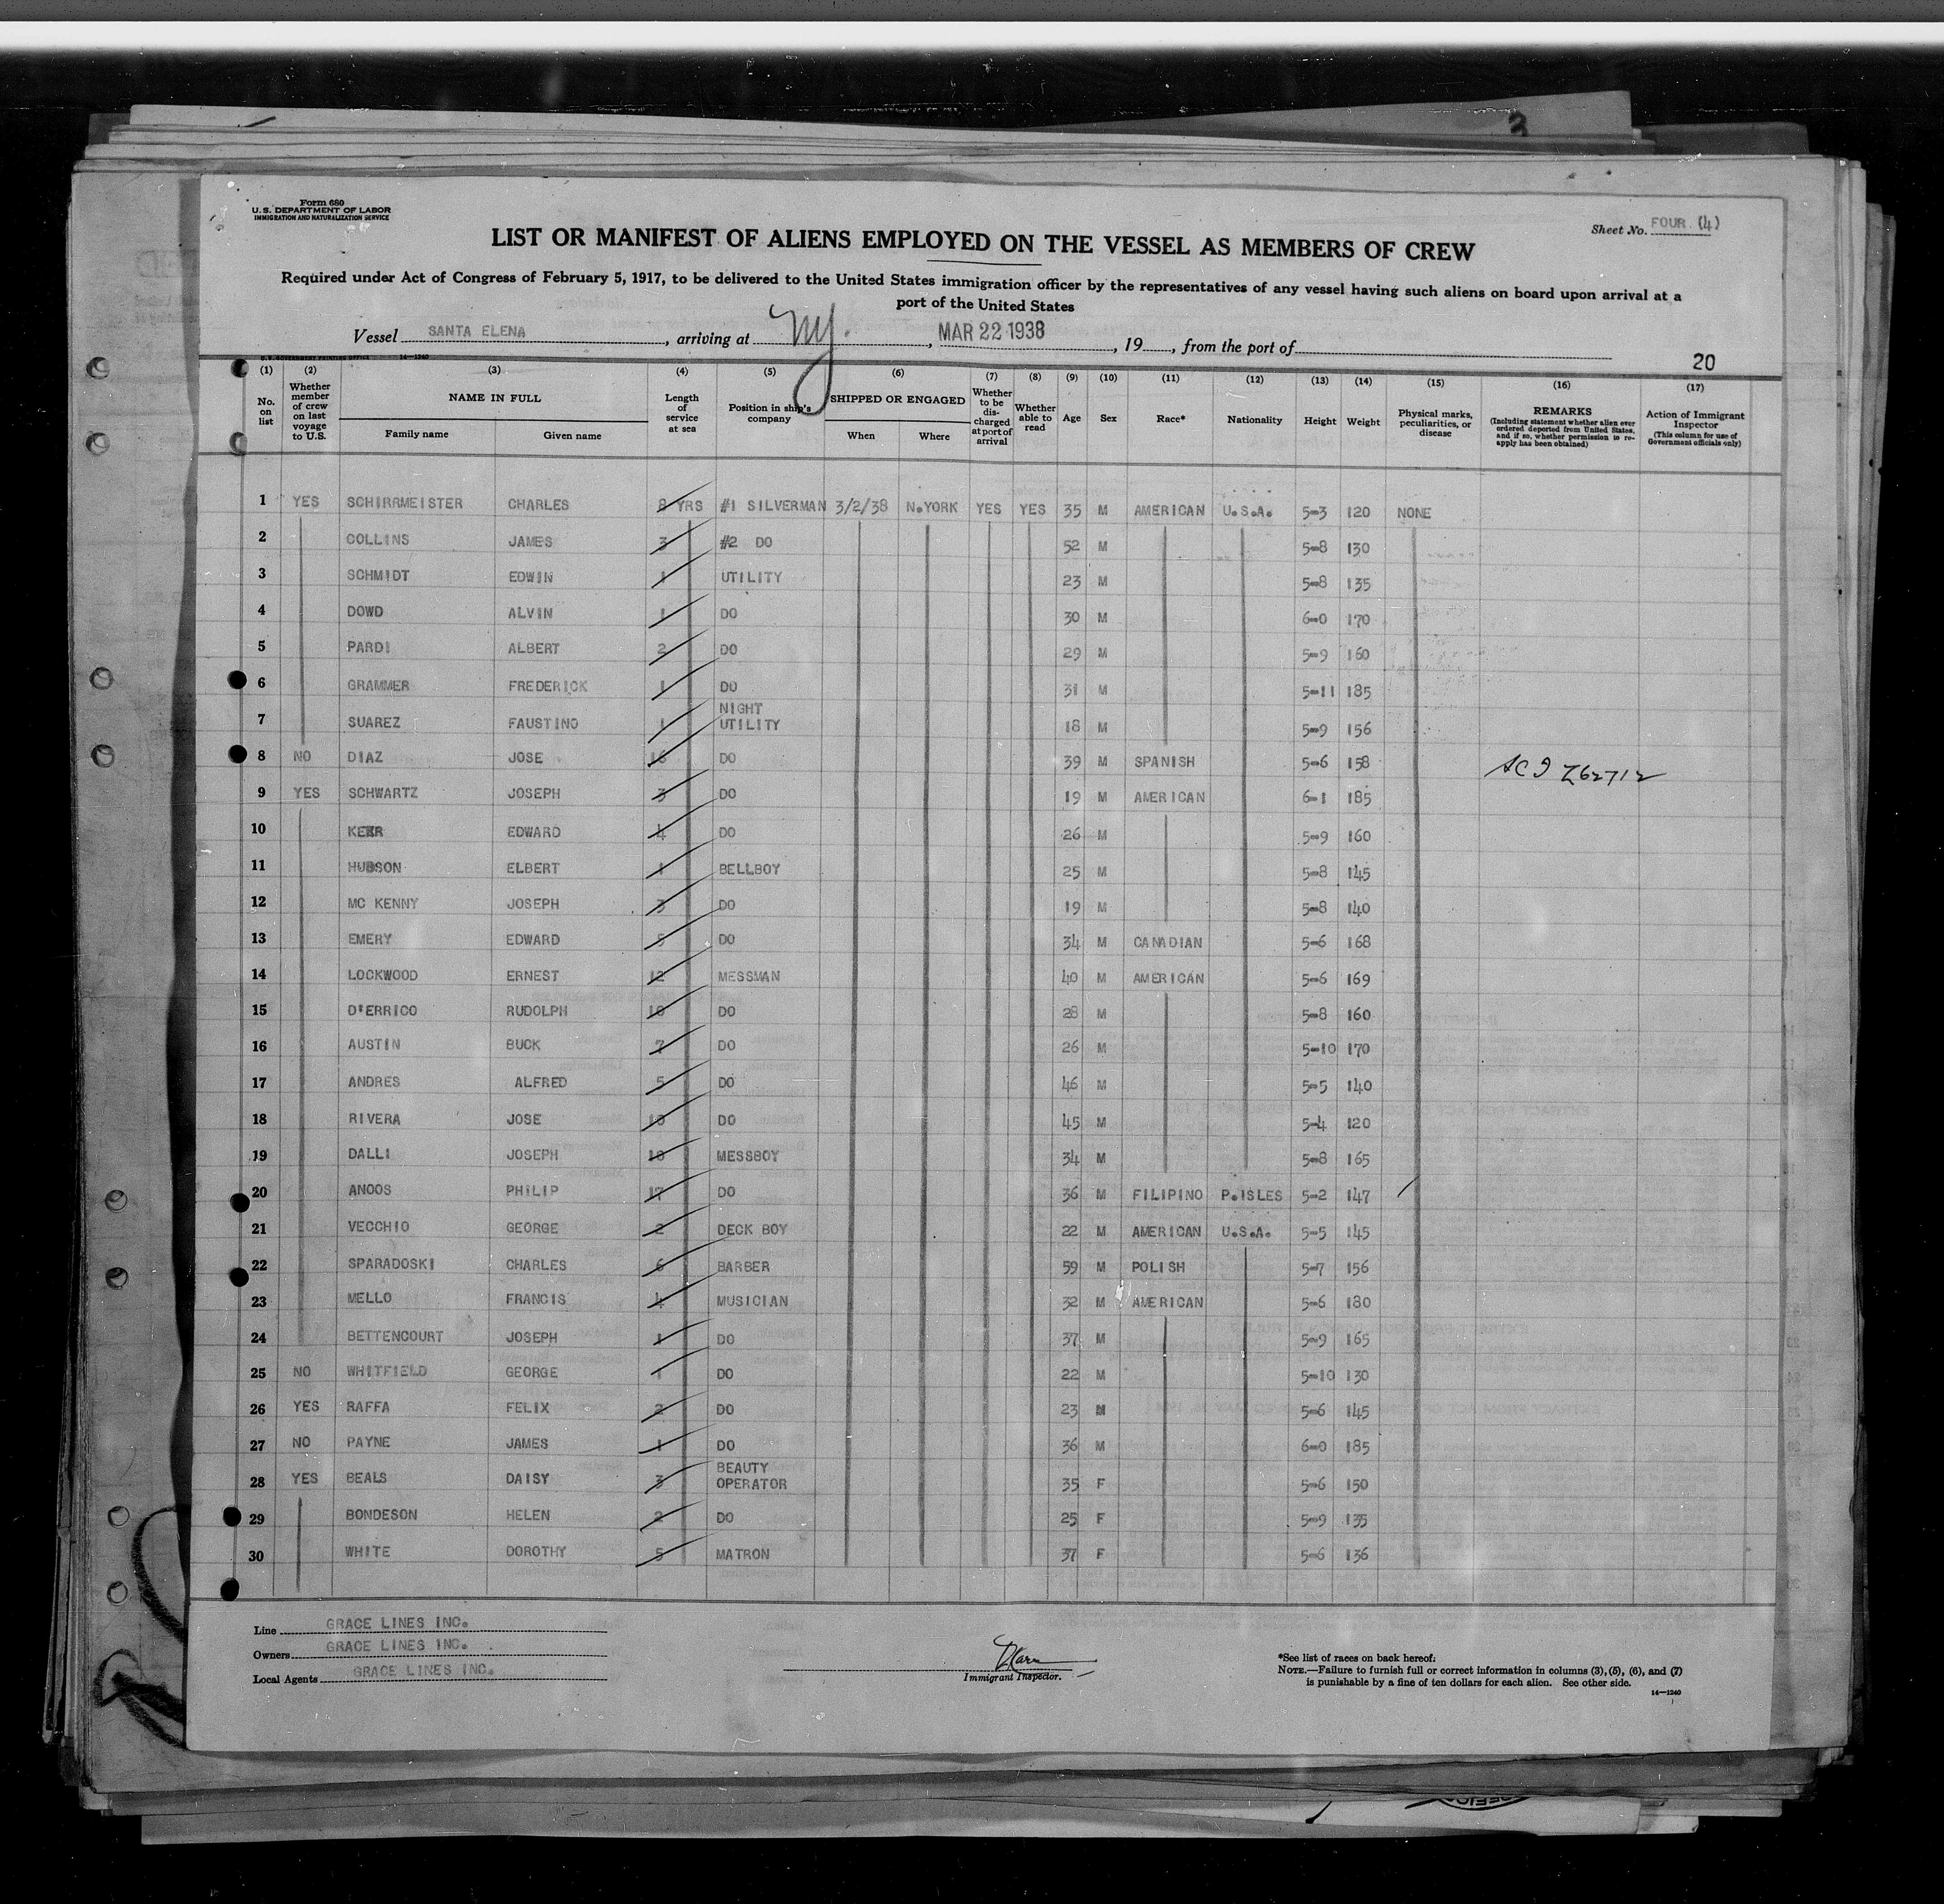 Form 680
U. S. DEPARTMENT OF LABOR
IMMIGRATION AND NATURALIZATION SERVICE
Sheet No. FOUR (4)
LIST OR MANIFEST OF ALIENS EMPLOYED ON THE VESSEL AS MEMBERS OF CREW
Required under Act of Congress of February 5, 1917, to be delivered to the United States immigration officer by the representatives of any vessel having such aliens on board upon arrival at a
port of the United States
Vessel SANTA ELENA, arriving at NY., MAR 22 1938, 19, from the port of
U. S. GOVERNMENT PRINTING OFFICE 14—1240
20
(1) (2) (3) (4) (5) (6) (7) (8) (9) (10) (11) (12) (13) (14) (15) (16) (17)
No. on list
Whether member of crew on last voyage to U.S.
NAME IN FULL
Family name
Given name
Length of service at sea
Position in ship's company
SHIPPED OR ENGAGED
When
Where
Whether to be discharged at port of arrival
Whether able to read
Age
Sex
Race*
Nationality
Height
Weight
Physical marks, peculiarities, or disease
REMARKS
(Including statement whether alien ever ordered deported from United States, and if so, whether permission to reapply has been obtained)
Action of Immigrant Inspector
(This column for use of Government officials only)
1 YES SCHIRRMEISTER CHARLES 8 YRS #1 SILVERMAN 3/2/38 N.YORK YES YES 35 M AMERICAN U.S.A. 5-3 120 NONE
2 COLLINS JAMES 3 #2 DO 52 M 5-8 130
3 SCHMIDT EDWIN 1 UTILITY 23 M 5-8 135
4 DOWD ALVIN 1 DO 30 M 6-0 170
5 PARDI ALBERT 2 DO 29 M 5-9 160
6 GRAMMER FREDERICK 1 DO 31 M 5-11 185
7 SUAREZ FAUSTINO 1 NIGHT UTILITY 18 M 5-9 156
8 NO DIAZ JOSE 16 DO 39 M SPANISH 5-6 158 Z62712
9 YES SCHWARTZ JOSEPH 3 DO 19 M AMERICAN 6-1 185
10 EDWARD 4 DO 26 M 5-9 160
11 HUDSON ELBERT 1 BELLBOY 25 M 5-8 145
12 MC KENNY JOSEPH 3 DO 19 M 5-8 140
13 EMERY EDWARD 5 DO 34 M CANADIAN 5-6 168
14 LOCKWOOD ERNEST 12 MESSMAN 40 M AMERICAN 5-6 169
15 D'ERRICO RUDOLPH 10 DO 28 M 5-8 160
16 AUSTIN BUCK 7 DO 26 M 5-10 170
17 ANDRES ALFRED 5 DO 46 M 5-5 140
18 RIVERA JOSE DO 45 M 5-4 120
19 DALLI JOSEPH MESSBOY 34 M 5-8 165
20 ANOOS PHILIP 17 DO 36 M FILIPINO P.ISLES 5-2 147
21 VECCHIO GEORGE 2 DECK BOY 22 M AMERICAN U.S.A. 5-5 145
22 SPARADOSKI CHARLES 6 BARBER 59 M POLISH 5-7 156
23 MELLO FRANCIS 4 MUSICIAN 32 M AMERICAN 5-6 180
24 BETTENCOURT JOSEPH 1 DO 37 M 5-9 165
25 NO WHITFIELD GEORGE 1 DO 22 M 5-10 130
26 YES RAFFA FELIX 2 DO 23 M 5-6 145
27 NO PAYNE JAMES 1 DO 36 M 6-0 185
28 YES BEALS DAISY 3 BEAUTY OPERATOR 35 F 5-6 150
29 BONDESON HELEN 2 DO 25 F 5-9 135
30 WHITE DOROTHY 5 MATRON 37 F 5-6 136
Line GRACE LINES INC.
Owners GRACE LINES INC.
Local Agents GRACE LINES INC.
Immigrant Inspector.
*See list of races on back hereof.
NOTE.—Failure to furnish full or correct information in columns (3), (5), (6), and (7)
is punishable by a fine of ten dollars for each alien. See other side.
14—1240